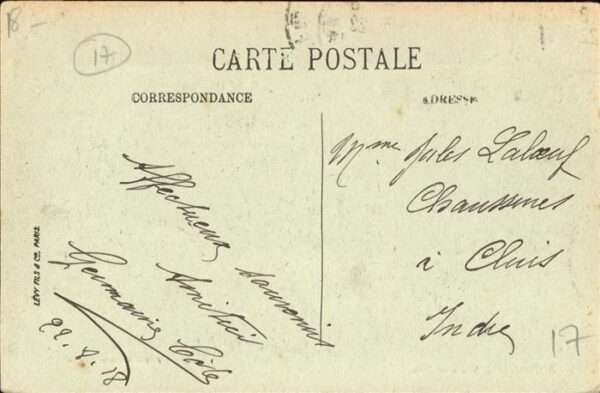 18 -
17
CARTE POSTALE
CORRESPONDANCE
ADRESSE
Mme Jules Labœuf
Chaussures
à Cluis
Indre
17
Affectueux souvenir
Amitiés
Germaine
22.8.18
LÉVY FILS & Cie. PARIS